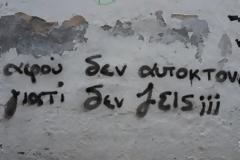 αφού δεν αυτοκτον
γιατί δεν ζεις;;;